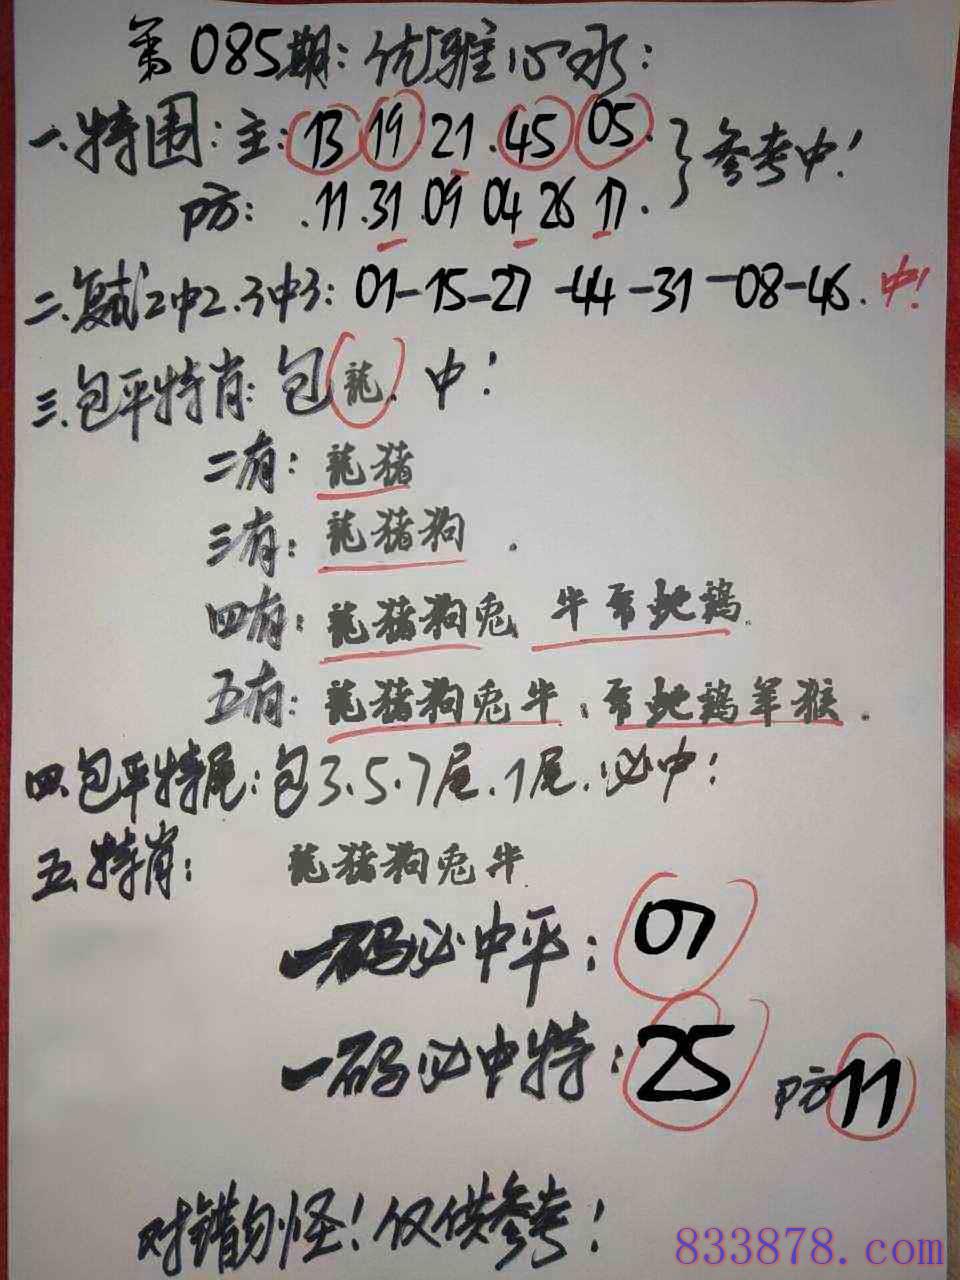 第085期：优雅心水：
一.特围：主：13 19 21.45 05.
防：.11.31.09 04 26 17.
}参考中！
二.复式2中2.3中3：01-15-27-44-31-08-46.中！
三.包平特肖：包龍.中！
二有：龍猪
三有：龍猪狗.
四有：龍猪狗兎 牛蛇鷄.
五有：龍猪狗兎牛.蛇鷄羊猴.
四.包平特尾：包3.5.7尾.1尾.必中！
五.特肖：龍猪狗兎牛.
一码必中平：07
一码必中特：25 防11
对错勿怪！仅供参考！
833878.com